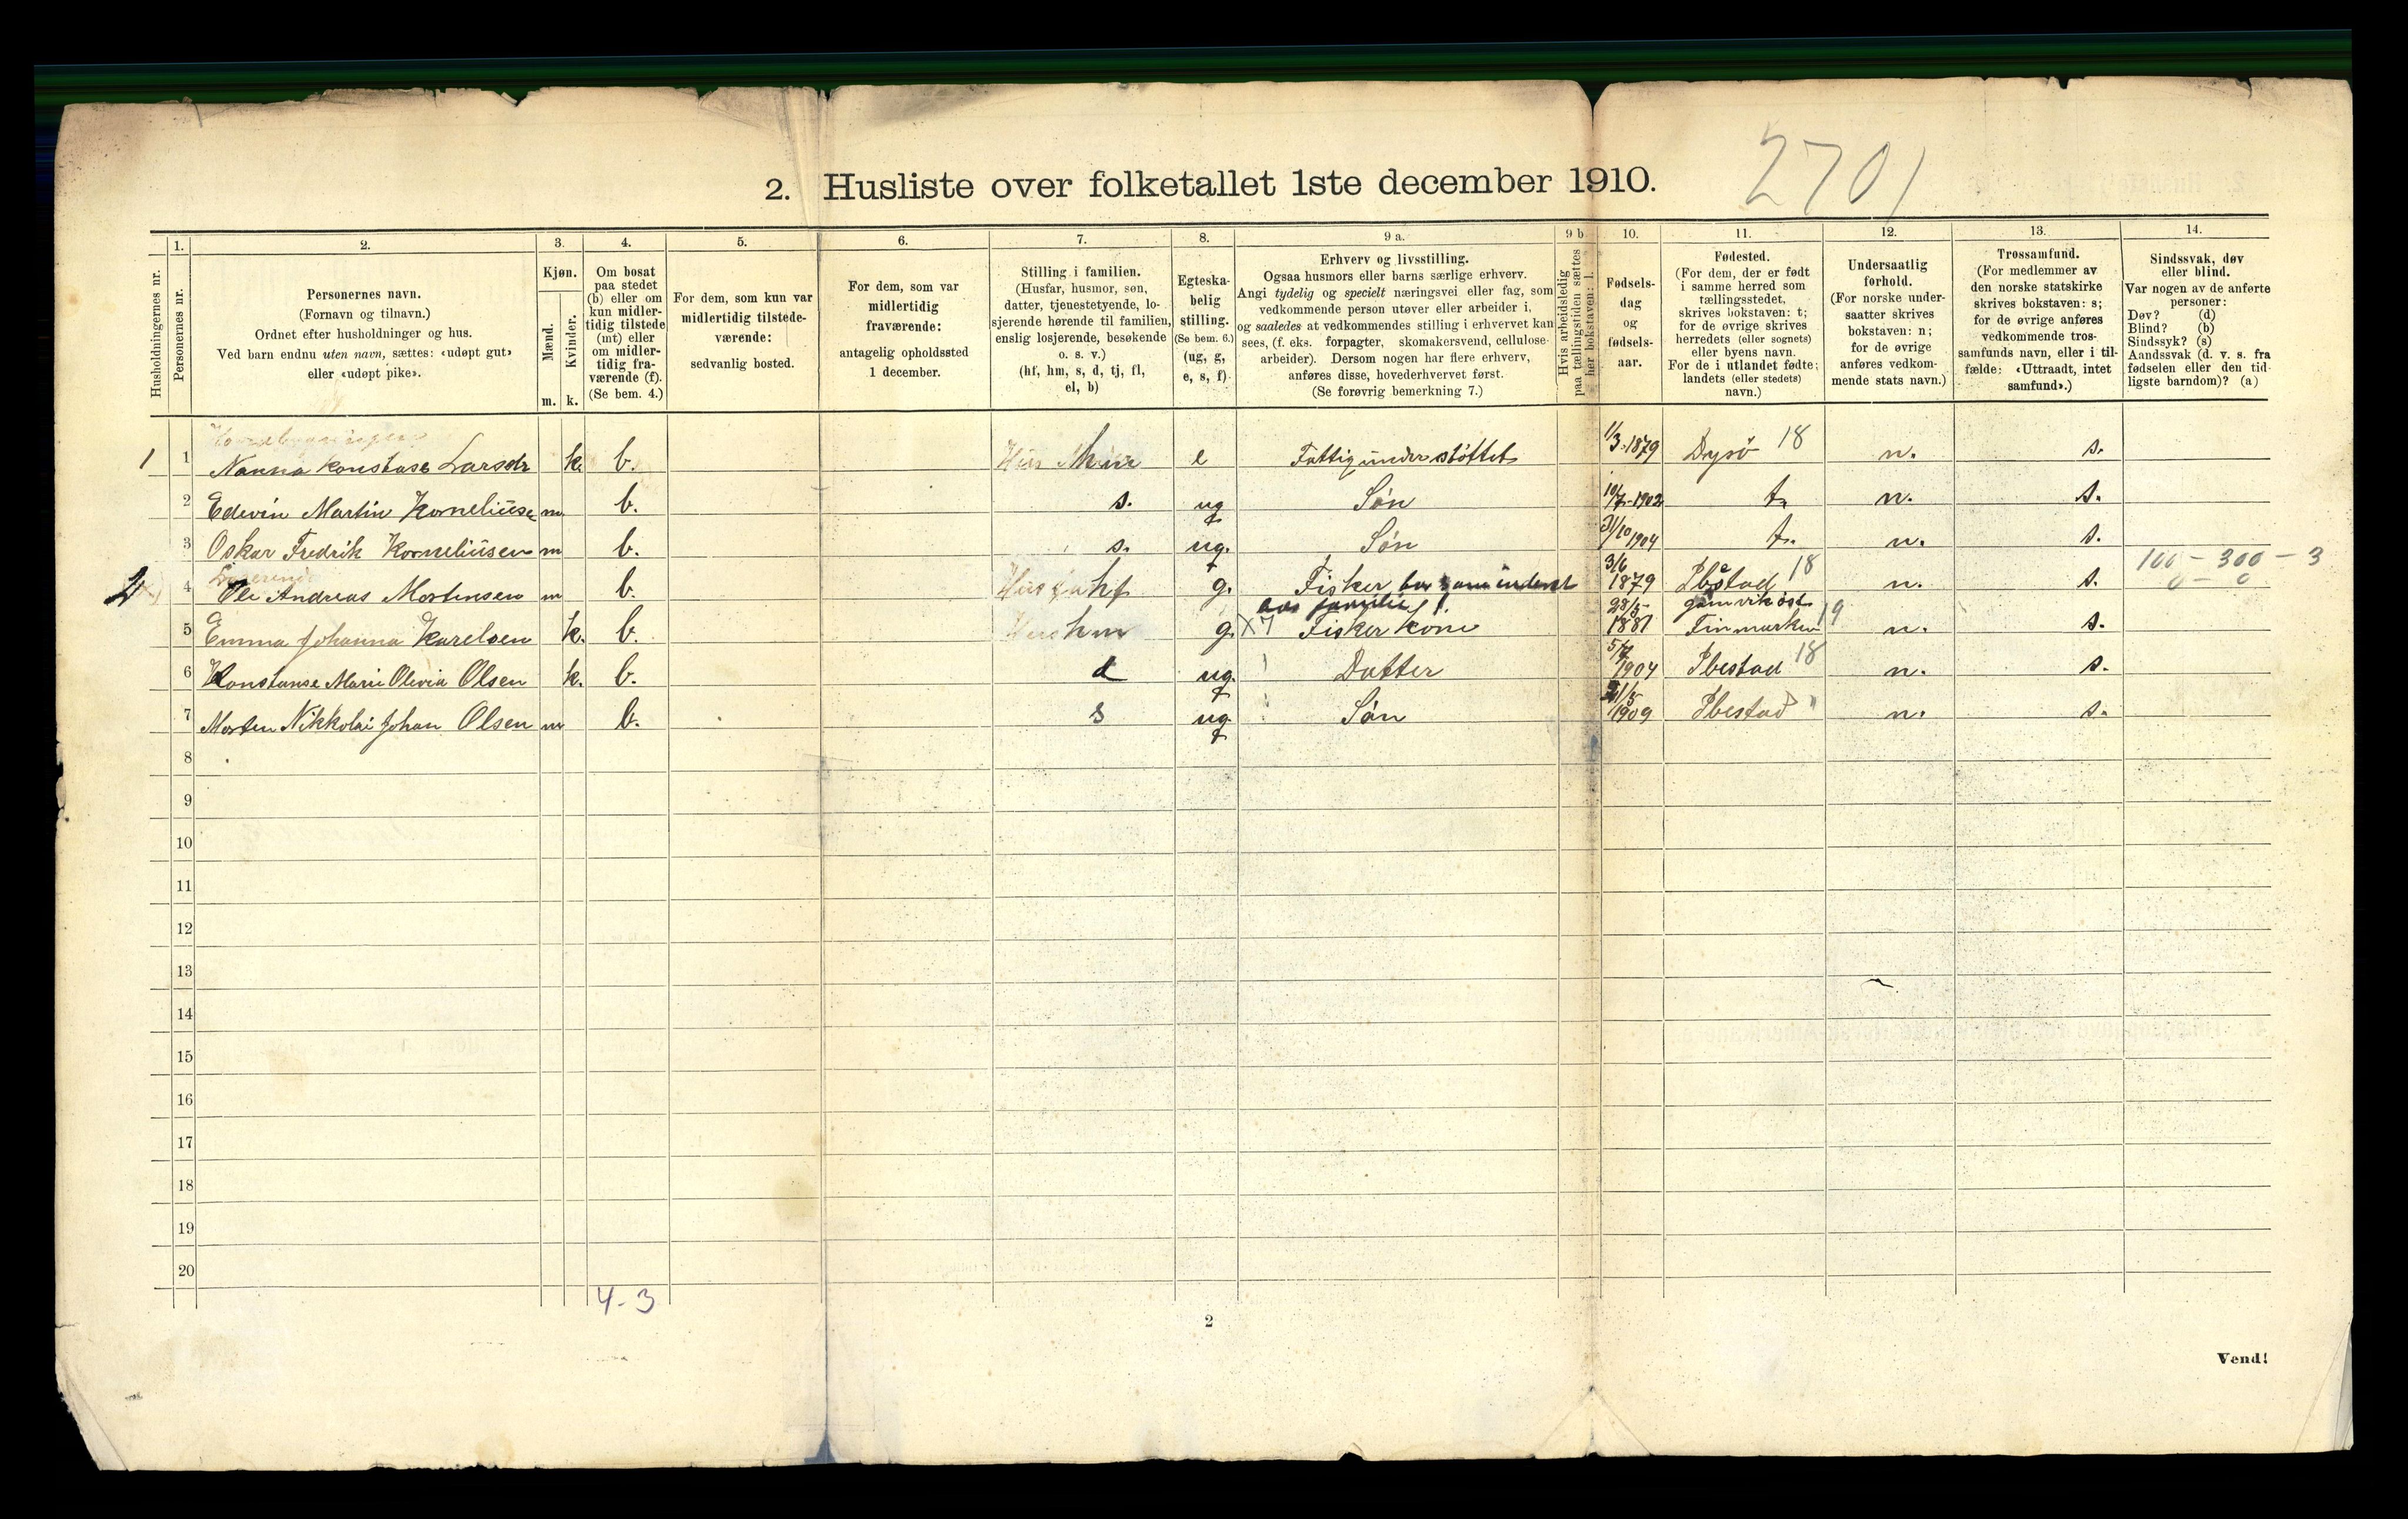 2701
2. Husliste over folketallet 1ste december 1910.
Husholdningernes nr.
1.
Personernes nr.
2.
Personernes navn.
(Fornavn og tilnavn.)
Ordnet efter husholdninger og hus.
Ved barn endnu uten navn, sættes: «udøpt gut»
eller «udøpt pike».
3.
Kjøn.
Mænd.
Kvinder.
m. k.
4.
Om bosat
paa stedet
(b) eller om
kun midler-
tidig tilstede
(mt) eller
om midler-
tidig fra-
værende (f).
(Se bem. 4.)
5.
For dem, som kun var
midlertidig tilstede-
værende:
sedvanlig bosted.
6.
For dem, som var
midlertidig
fraværende:
antagelig opholdssted
1 december.
7.
Stilling i familien.
(Husfar, husmor, søn,
datter, tjenestetyende, lo-
sjerende hørende til familien,
enslig losjerende, besøkende
o. s. v.)
(hf, hm, s, d, tj, fl,
el, b)
8.
Egteska-
belig
stilling.
(Se bem. 6.)
(ug, g,
e, s, f)
9 a.
Erhverv og livsstilling.
Ogsaa husmors eller barns særlige erhverv.
Angi tydelig og specielt næringsvei eller fag, som
vedkommende person utøver eller arbeider i,
og saaledes at vedkommendes stilling i erhvervet kan
sees, (f. eks. forpagter, skomakersvend, cellulose-
arbeider). Dersom nogen har flere erhverv,
anføres disse, hovederhvervet først.
(Se forøvrig bemerkning 7.)
9 b
Hvis arbeidsledig
paa tællingstiden sættes
her bokstaven: l.
10.
Fødsels-
dag
og
fødsels-
aar.
11.
Fødested.
(For dem, der er født
i samme herred som
tællingsstedet,
skrives bokstaven: t;
for de øvrige skrives
herredets (eller sognets)
eller byens navn.
For de i utlandet fødte:
landets (eller stedets)
navn.)
12.
Undersaatlig
forhold.
(For norske under-
saatter skrives
bokstaven: n;
for de øvrige
anføres vedkom-
mende stats navn.)
13.
Trossamfund.
(For medlemmer av
den norske statskirke
skrives bokstaven: s;
for de øvrige anføres
vedkommende tros-
samfunds navn, eller i til-
fælde: «Uttraadt, intet
samfund».)
14.
Sindssvak, døv
eller blind.
Var nogen av de anførte
personer:
Døv? (d)
Blind? (b)
Sindssyk? (s)
Aandssvak (d. v. s. fra
fødselen eller den tid-
ligste barndom)? (a)
1 1 Nanna Konstase Larsdr k. b. hm e Fattigunderstøttet 1/3-1879 Dyrö 18 n. s.
2 Edevin Martin Korneliuse m. b. s. ug 10/7-1902 Søn t. n. s.
3 Oskar Fredrik Korneliusen m b. s. ug. Søn 31/10 1904 t. n. s.
2 4 Ole Andreas Mortensen m b. hf g. Fisker 3/6 1879 Ibestad 18 n. s. 100 - 300 - 3
0 - 0
5 Emma Johanna Karelsen k. b. hm g. X7 Fisker kone 28/5- 1881 Gamvik øst Finmarken 19 n. s.
6 Konstanse Marie Olevia Olsen k. b. d ug. Datter 5/7 1904 Ibestad 18 n. s.
7 Morten Nikkolai Johan Olsen m b. s ug. Søn 21/5 1909 Ibestad " n. s.
8
9
10
11
12
13
14
15
16
17
18
19
20
4-3
2
Vend!